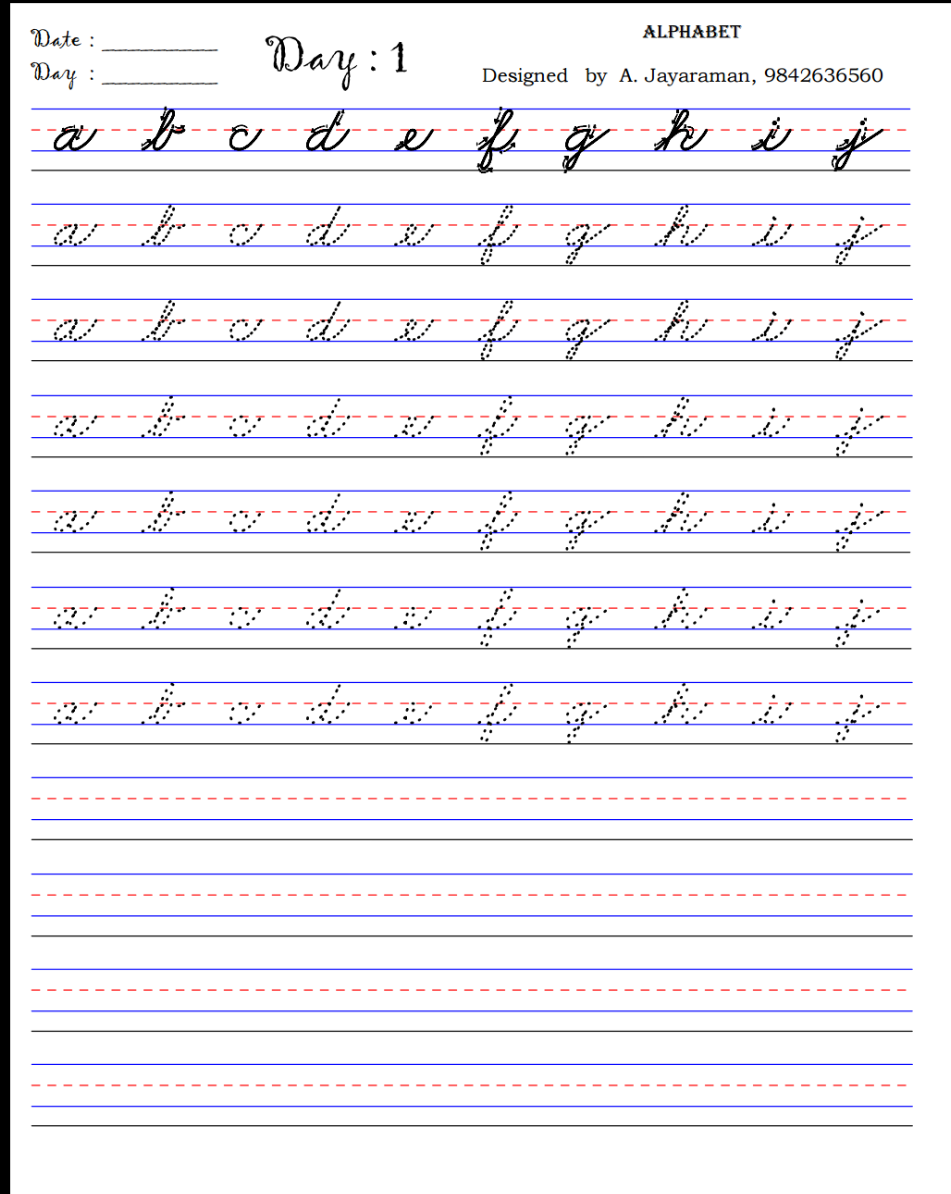 Date : ____________
Day : ____________
Day : 1
ALPHABET
Designed by A. Jayaraman, 9842636560
a b c d e f g h i j
a b c d e f g h i j
a b c d e f g h i j
a b c d e f g h i j
a b c d e f g h i j
a b c d e f g h i j
a b c d e f g h i j